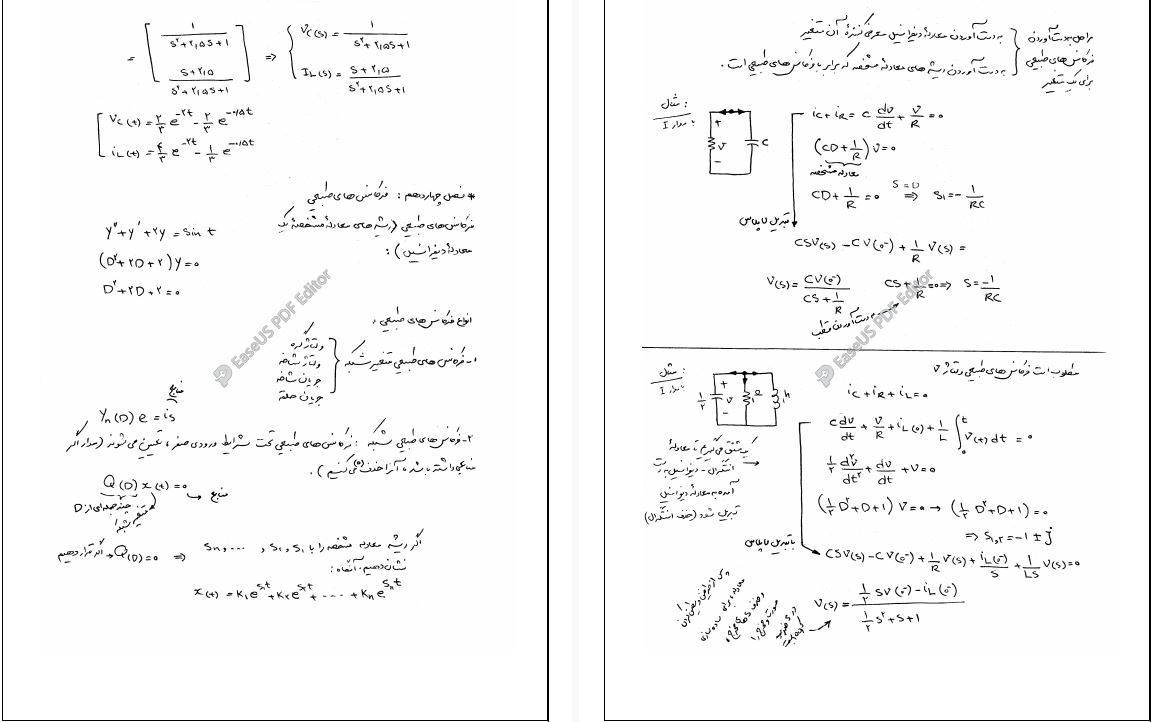 = [ 1 / S²+۲٫۵S+1 ⇒ { Vc(s) = 1 / S²+۲٫۵S+1
S+۲٫۵ / S²+۲٫۵S+1 ] IL(s) = S+۲٫۵ / S²+۲٫۵S+1
Vc(t) = ۲/۳ e^-۲t - ۲/۳ e^-۰٫۵t
iL(t) = ۴/۳ e^-۲t - ۱/۳ e^-۰٫۵t
* فصل چهاردهم : فرکانس های طبیعی
فرکانس های طبیعی (ریشه های معادلهٔ مشخصهٔ یک
معادلهٔ دیفرانسیل) :
y″+y′+۲y = sin t
(D²+۲D+۲)y = ۰
D²+۲D+۲ = ۰
EaseUS PDF Editor
انواع فرکانس های طبیعی :
۱- فرکانس های طبیعی متغیر شبکه
ولتاژ گره
ولتاژ شاخه
جریان شاخه
جریان حلقه
منابع
Yn(D) e = is
۲- فرکانس های طبیعی شبکه : فرکانس های طبیعی تحت شرایط ورودی صفر، تعیین می شوند (مدار اگر
منابعی داشته باشد، آنرا حذف (۰) می کنیم).
Q(D) x(t) = ۰ → منابع
چند جمله ای از D
متغیر شبکه
اگر ریشه معادله مشخصه را با S1, S۲, ..., Sn ⇒ Q(D) = ۰ → اگر قرار دهیم
نشان دهیم، آنگاه :
x(t) = K1e^S1t + K۲e^S۲t + .... + Kn e^Snt
مراحل بدست آوردن
فرکانس های طبیعی
برای یک متغیر
به دست آوردن معادلهٔ دیفرانسیل معرفی کنندهٔ آن متغیر
به دست آوردن ریشه های معادلهٔ مشخصه که برابر با فرکانس های طبیعی است.
مثال :
مدار I
+ V - R C
ic + iR = C dv/dt + V/R = ۰
(CD + 1/R) V = ۰
معادله مشخصه
CD + 1/R = ۰ S=D ⇒ S1 = - 1/RC
تبدیل لاپلاس
CSV(s) - CV(0⁻) + 1/R V(s) =
V(s) = CV(0⁻) / CS + 1/R CS + 1/R = ۰ ⇒ S = -1/RC
به دست آوردن قطب
EaseUS PDF Editor
مطلوب است فرکانس های طبیعی ولتاژ V
مثال :
مدار I
1/۲ + V - 1Ω 1h
ic + iR + iL = ۰
C dv/dt + V/R + iL(0) + 1/L ∫ V(t) dt = ۰
یک مشتق می گیریم تا معادله
انتگرال - دیفرانسیل به دست
آمده به معادله دیفرانسیل
تبدیل شود (حذف انتگرال)
1/۲ d²v/dt² + dv/dt + V = ۰
(1/۲ D² + D + 1) V = ۰ → (1/۲ D² + D + 1) = ۰
⇒ S1,۲ = -1 ± j
با تبدیل لاپلاس
CSV(s) - CV(0⁻) + 1/R V(s) + iL(0⁻)/S + 1/LS V(s) = ۰
V(s) = 1/۲ SV(0⁻) - iL(0⁻) / 1/۲ S² + S + 1